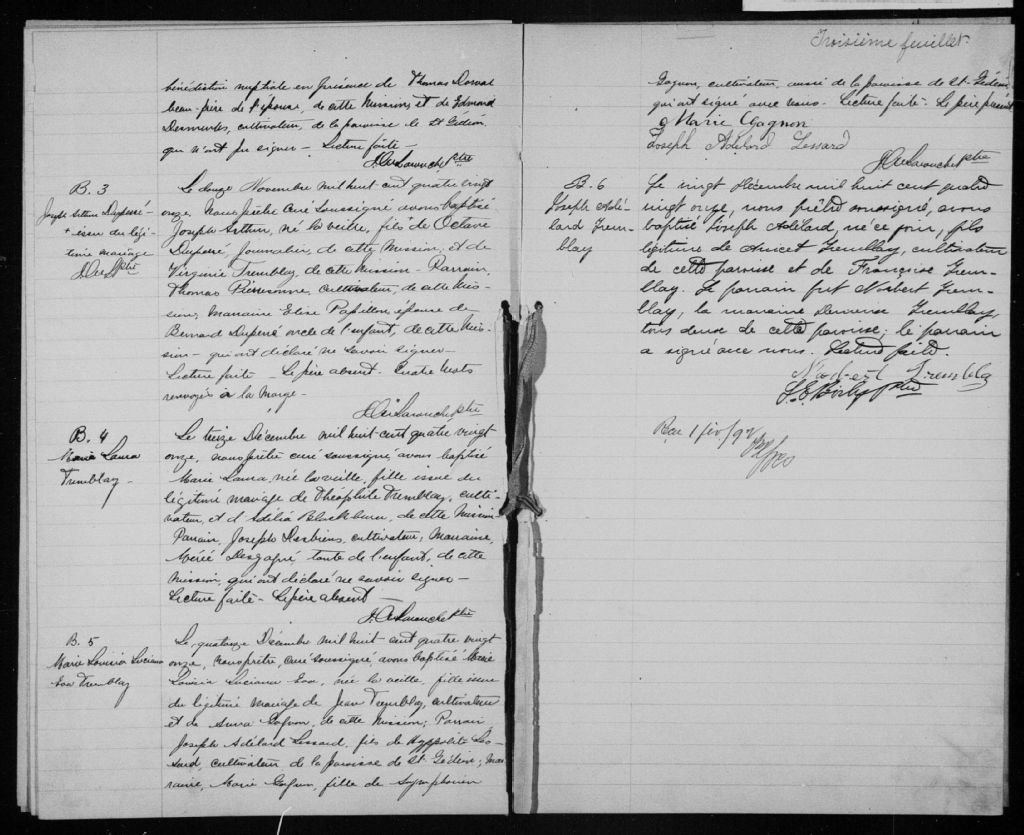 bénédiction nuptiale en présence de Thomas
beau-père de l'épouse, de cette Mission, et de Edmond
Desmeules, cultivateur, de la paroisse de St Gédéon
qui n'ont pu signer - Lecture faite -
J. O. Larouche ptre
B. 3
Joseph Arthur Duperré -
+ issu du légi-
time mariage
J.O.L. ptre
Le douze Novembre mil huit cent quatre vingt
onze, Nous prêtre curé soussigné avons baptisé
Joseph Arthur, né la veille, fils de Octave
Duperré, journalier, de cette Mission, et de
Virginie Tremblay, de cette Mission - Parrain,
Thomas Pierssonne, cultivateur, de cette Mis-
sion; Marraine Elise Papillon, épouse de
Bernard Duperré oncle de l'enfant, de cette Mis-
sion - qui ont déclaré ne savoir signer -
Lecture faite - Le père absent. Quatre mots
renvoyés à la marge -
J. O. Larouche ptre
B. 4
Marie Laura
Tremblay -
Le treize Décembre mil huit cent quatre vingt
onze, nous prêtre curé soussigné, avons baptisé
Marie Laura, née la veille, fille issue du
légitime mariage de Théophile Tremblay, culti-
vateur, et d'Adélia Blackburn, de cette Mission
Parrain, Joseph Desbiens, cultivateur; Marraine,
Desgagné, tante de l'enfant, de cette
Mission, qui ont déclaré ne savoir signer -
Lecture faite - Le père absent -
J. O. Larouche ptre
B. 5
Marie Lovisia Luciana
Eva Tremblay
Le quatorze Décembre mil huit - cent quatre vingt
onze, nous prêtre, curé soussigné avons baptisé Marie
Lovisia Luciana Eva, née la veille, fille issue
du légitime mariage de Jean Tremblay, cultivateur
et de Anna Gagnon, de cette Mission; Parrain
Joseph Adélard Lessard, fils de Hyppolite Les-
sard, cultivateur de la paroisse de St. Gédéon; Mar-
raine, Marie Gagnon, fille de Symphorien
Troisième feuillet.
Gagnon, cultivateur, aussi de la paroisse de St-Gédéon
qui ont signé avec nous - Lecture faite - Le père présent
Marie Gagnon
Joseph Adélard Lessard
J. O. Larouche ptre
B. 6
Joseph Adé-
lard Trem-
blay
Le vingt décembre mil huit cent quatre
vingt onze, nous prêtre soussigné, avons
baptisé Joseph Adélard, né ce jour, fils
légitime de Anicet Tremblay, cultivateur
de cette paroisse et de Françoise Trem-
blay. Le parrain fut Norbert Trem-
blay, la marraine Tremblay,
tous deux de cette paroisse; le parrain
a signé avec nous. Lecture faite.
Norbert Tremblay
ptre
1 fév/92